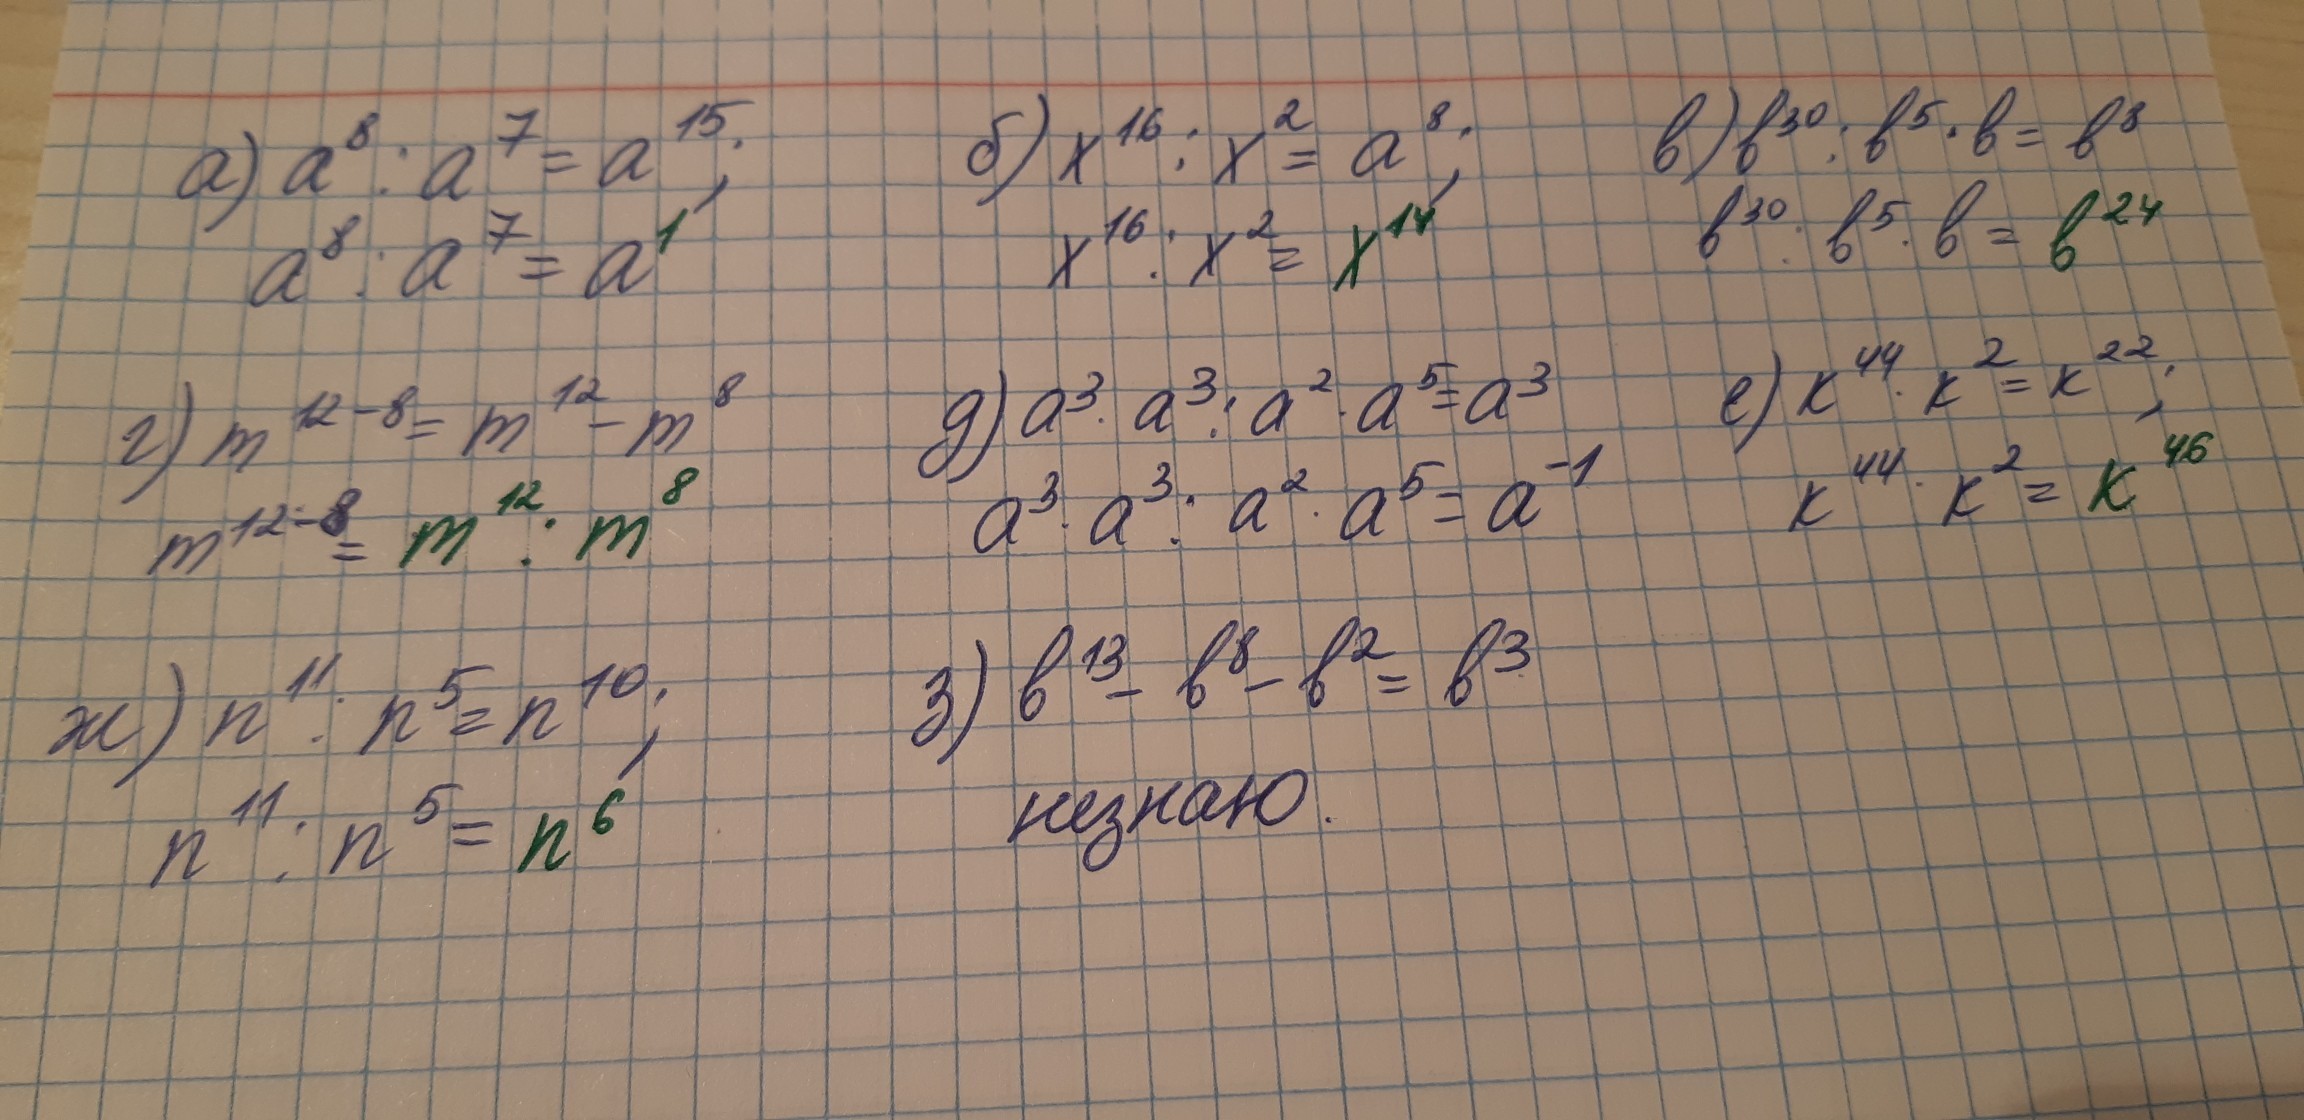 а) a⁸ : a⁷ = a¹⁵;
a⁸ : a⁷ = a¹
б) x¹⁶ : x² = a⁸;
x¹⁶ : x² = x¹⁴
в) b³⁰ : b⁵ · b = b⁸
b³⁰ : b⁵ · b = b²⁴
г) m¹²⁻⁸ = m¹² - m⁸
m¹²⁻⁸ = m¹² : m⁸
д) a³ · a³ : a² · a⁵ = a³
a³ · a³ : a² · a⁵ = a⁻¹
е) k⁴⁴ · k² = k²²;
k⁴⁴ · k² = k⁴⁶
ж) n¹¹ : n⁵ = n¹⁰;
n¹¹ : n⁵ = n⁶
з) b¹³ - b⁸ - b² = b³
незнаю.